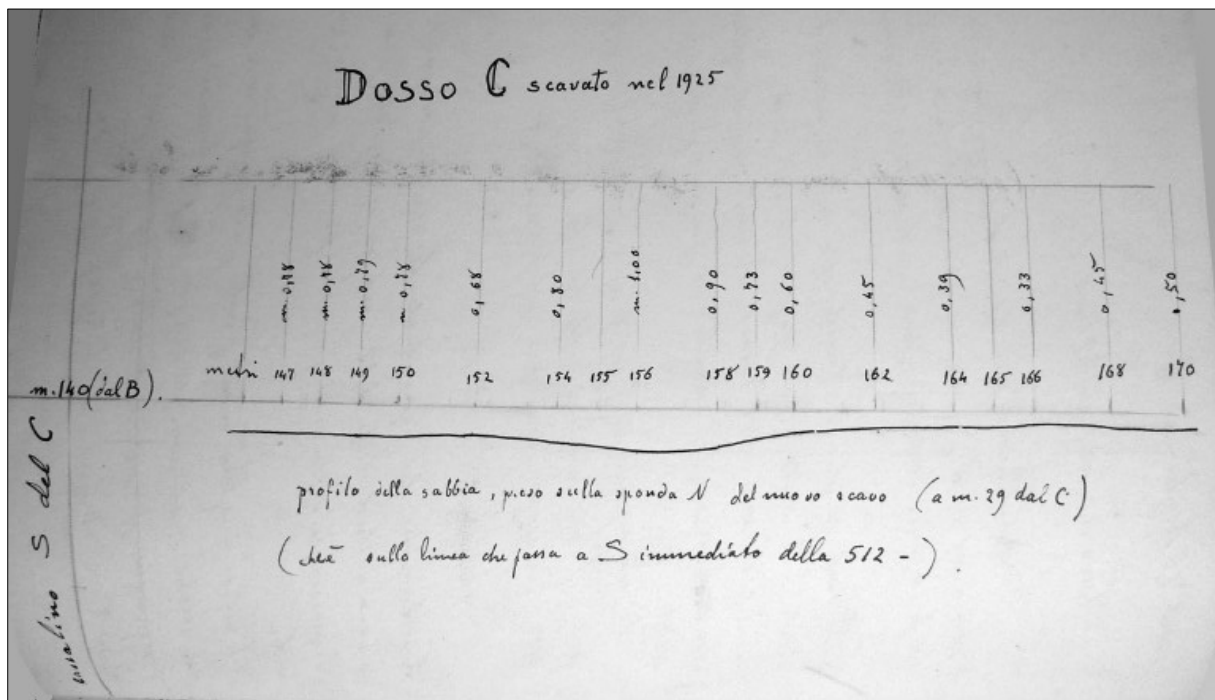 Dosso C scavato nel 1925
m. 0,78 m. 0,78 m. 0,79 m. 0,78 0,68 0,80 m. 1,00 0,90 0,73 0,60 0,45 0,39 0,33 0,45 0,50
metri 147 148 149 150 152 154 155 156 158 159 160 162 164 165 166 168 170
m. 140 (dal B).
profilo della sabbia, preso sulla sponda N del nuovo scavo (a m. 29 dal C)
(cioè sulla linea che passa a S immediato della 512 -).
S del C